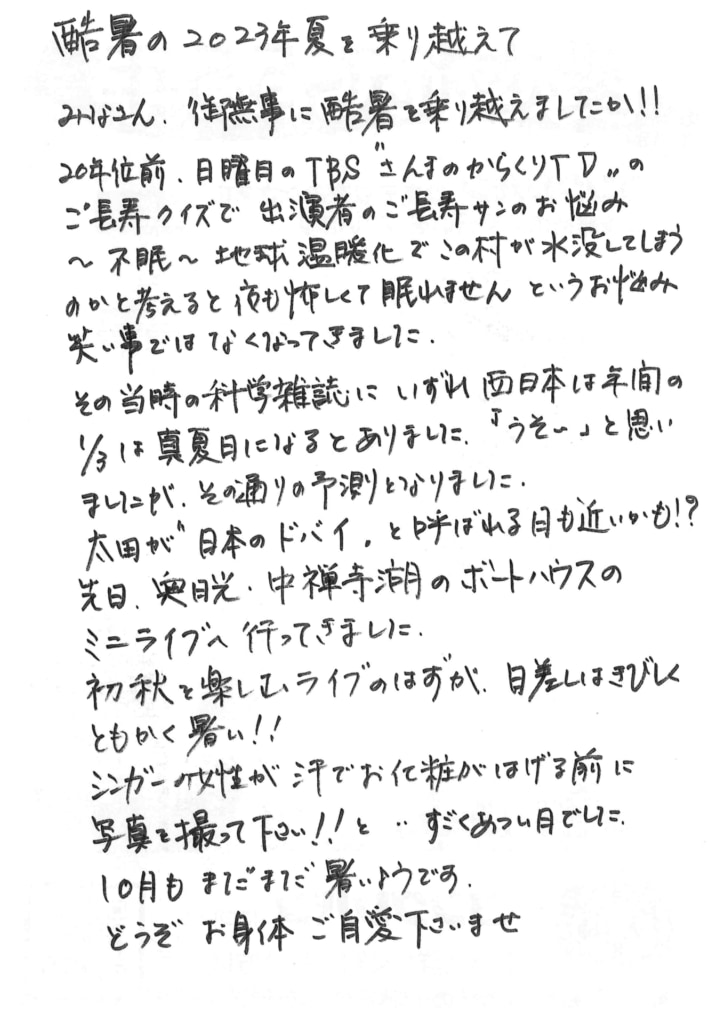 酷暑の2023年夏を乗り越えて
みなさん、御無事に酷暑を乗り越えましたか!!
20年位前、日曜日のTBS“さんまのからくりTD〟の
ご長寿クイズで 出演者のご長寿サンのお悩み
〜不眠〜 地球温暖化でこの村が水没してしまう
のかと考えると夜も怖しくて眠れません というお悩み
笑い事ではなくなってきました.
その当時の科学雑誌に いずれ西日本は年間の
1/3は真夏日になるとありました.「うそ〜」と思い
ましたが、その通りの予測となりました.
太田が“日本のドバイ〟と呼ばれる日も近いかも!?
先日、奥日光・中禅寺湖のボートハウスの
ミニライブへ行ってきました.
初秋を楽しむライブのはずが、日差しはきびしく
ともかく暑い!!
シンガーの女性が 汗でお化粧がはげる前に
写真を撮って下さい!!と‥ すごくあつい日でした.
10月も まだまだ 暑いようです.
どうぞ お身体 ご自愛下さいませ